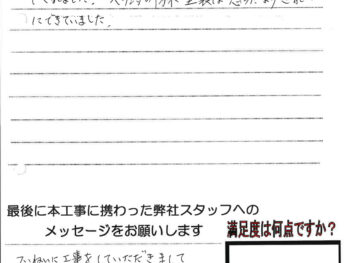 にできていました。
最後に本工事に携わった弊社スタッフへの
メッセージをお願いします
満足度は何点ですか？
ていねいに工事をしていただきまして